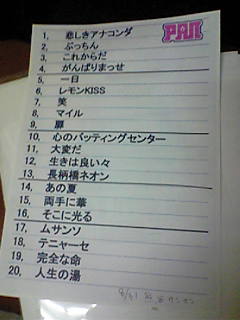 PAN
1, 悲しきアナコンダ
2, ぶっちん
3, これからだ
4, がんばりまっせ
5, 一日
6, レモンKISS
7, 笑
8, マイル
9, 扉
10, 心のバッティングセンター
11, 大変だ
12, 生きは良い々
13, 長柄橋ネオン
14, あの夏
15, 両手に華
16, そこに光る
17, ムサンソ
18, テニャーセ
19, 完全な命
20, 人生の湯